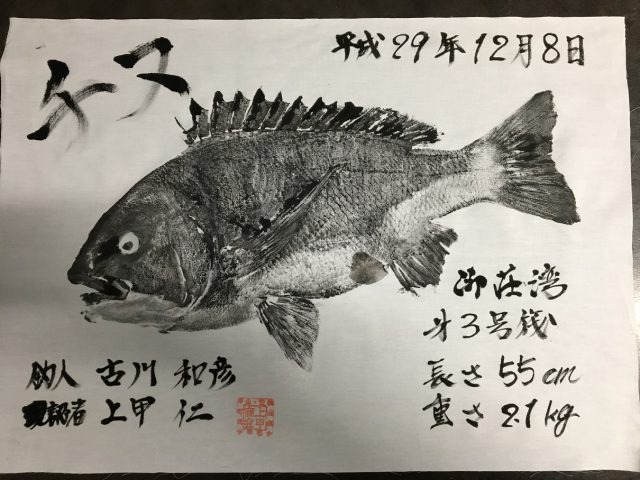 平成29年12月8日
チヌ
御荘湾
3号筏
長さ55cm
重さ2.1kg
釣人 古川 和彦
現認者 上甲 仁